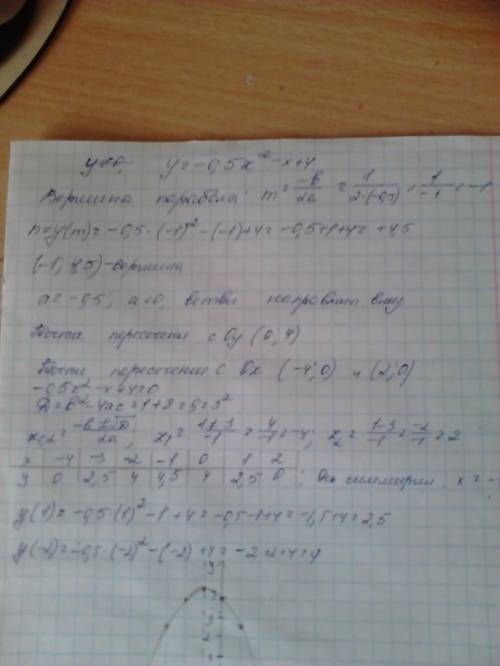 y = -0,5x² - x + 4
Вершина параболы: m = -b/2a = 1/(2·(-0,5)) = 1/-1 = -1
n = y(m) = -0,5·(-1)² - (-1) + 4 = -0,5 + 1 + 4 = 4,5
(-1; 4,5) - вершина
a = -0,5, a<0, ветви направлены вниз
Точка пересечение с Oy (0; 4)
Точки пересечение с Ox (-4; 0) и (2; 0)
-0,5x² - x + 4 = 0
D = b² - 4ac = 1 + 8 = 9 = 3²
x₁,₂ = (-b ± √D)/2a; x₁ = (1+3)/-1 = 4/-1 = -4; x₂ = (1-3)/-1 = -2/-1 = 2
x | -4 | -3 | -2 | -1 | 0 | 1 | 2
y | 0 | 2,5 | 4 | 4,5 | 4 | 2,5 | 0 ; Ось симметрии: x = -
y(1) = -0,5·(1)² - 1 + 4 = -0,5 - 1 + 4 = -1,5 + 4 = 2,5
y(-2) = -0,5·(-2)² - (-2) + 4 = -2 + 2 + 4 = 4